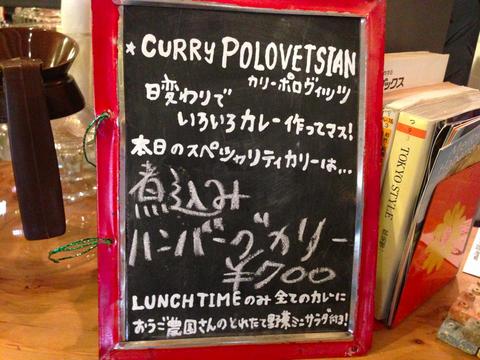 ★CURRY POLOVETSIAN
カリーポロヴィッツ
日変わりで
いろいろカレー作ってマス!
本日のスペシャリティカリーは...
煮込み
ハンバーグカリー
¥700
LUNCH TIMEのみ全てのカレーに
おうご農園さんのとれたて野菜ミニサラダ付き!
TOKYO STYLE